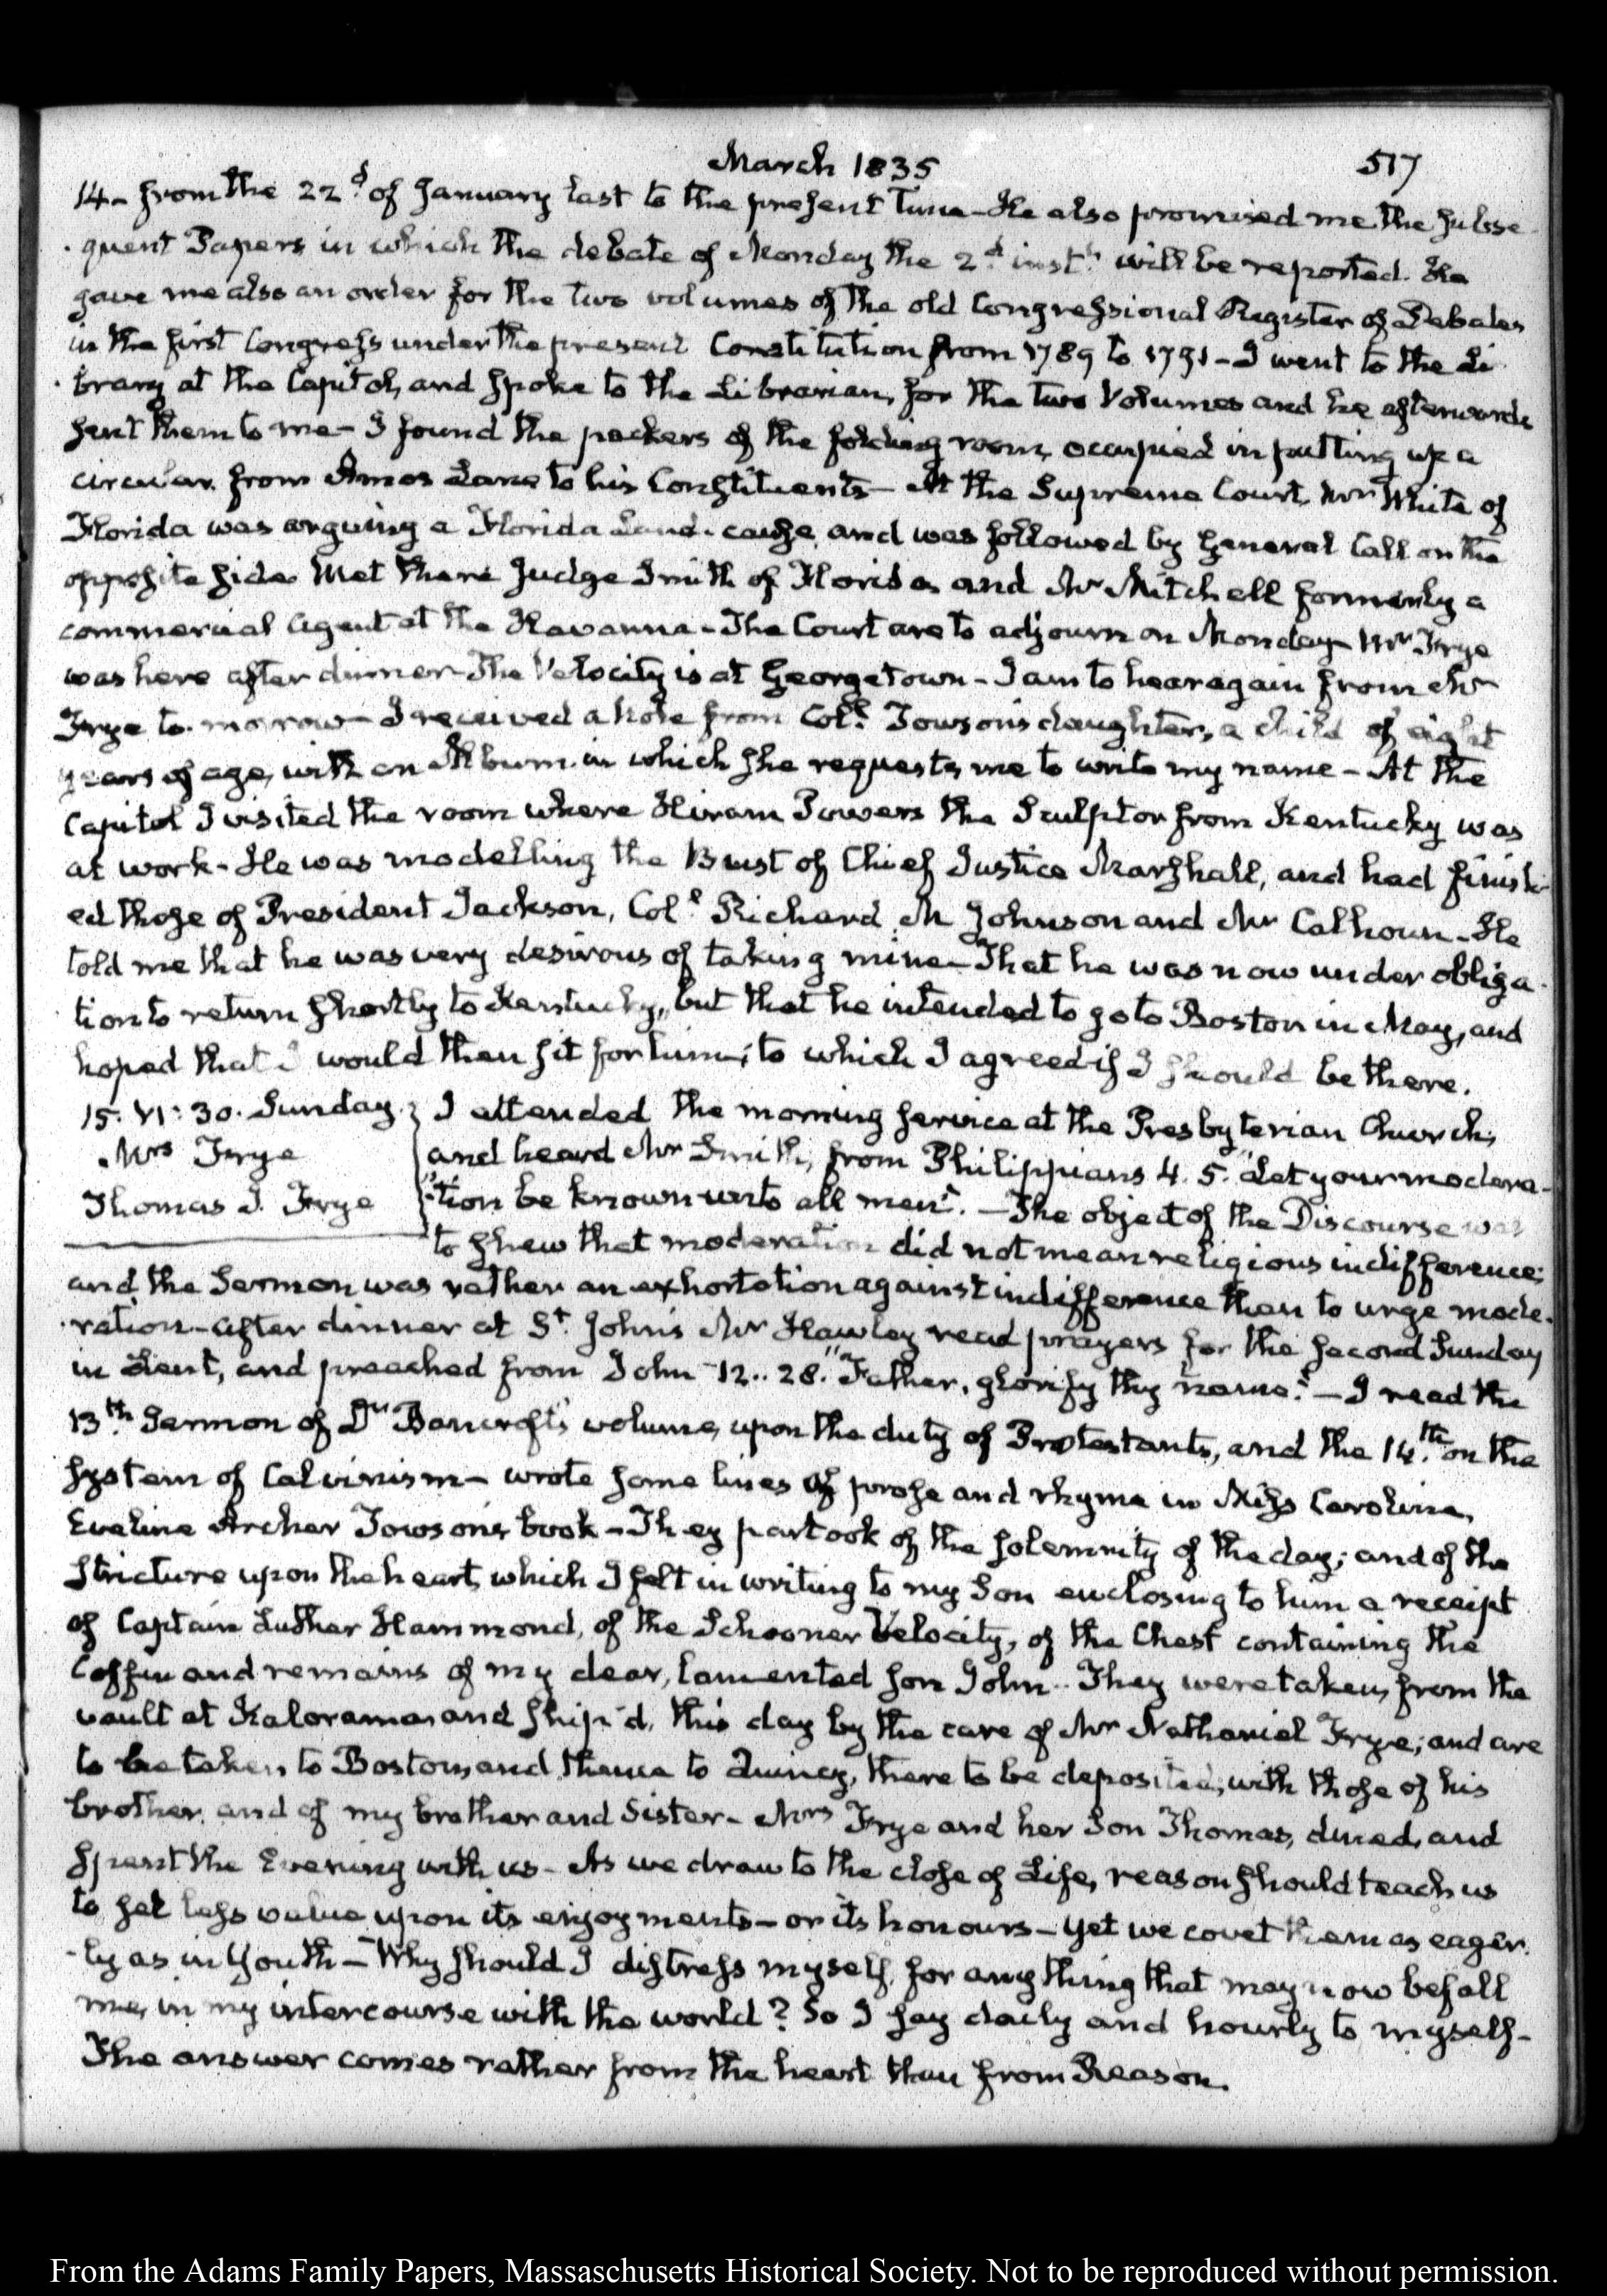 March 1835
517
14- from the 22d. of January last to the present Time- He also promised me the subse-
quent Papers in which the debate of Monday the 2d. inst.t will be reported. He
gave me also an order for the two volumes of the old Congressional Register of Debates
in the first Congress under the present Constitution from 1789 to 1791- I went to the Li-
brary at the Capitol, and spoke to the Librarian, for the two Volumes and he afterwards
sent them to me- I found the packers of the folding room, occupied in putting up a
circular from Amos Lane to his Constituents- At the Supreme Court, Mr White of
Florida was arguing a Florida Land-cause, and was followed by General Call on the
opposite side. Met there Judge Smith of Florida, and Mr Mitchell formerly a
commercial Agent at the Havanna- The Court are to adjourn on Monday- Mr Frye
was here after dinner- The Velocity is at Georgetown- I am to hear again from Mr
Frye to-morrow- I received a Note from Coll. Towson's daughter, a child of eight
years of age, with an Album in which she requests me to write my name- At the
Capitol I visited the room where Hiram Powers the Sculptor from Kentucky was
at work- He was modelling the Bust of Chief Justice Marshall, and had finish-
ed those of President Jackson, Coll. Richard M Johnson and Mr Calhoun- He
told me that he was very desirous of taking mine- That he was now under obliga-
tion to return shortly to Kentucky, but that he intended to go to Boston in May, and
hoped that I would then sit for him; to which I agreed if I should be there.
15. VI:30. Sunday. I attended the morning service at the Presbyterian Church,
Mrs Frye and heard Mr Smith, from Philippians 4. 5. "Let your modera-
Thomas J. Frye "tion be known unto all men". -The object of the Discourse was
to shew that moderation did not mean religious indifference;
and the Sermon was rather an exhortation against indifference than to urge mode-
ration- After dinner at St. John's Mr Hawley read prayers for the second Sunday
in Lent, and preached from John 12..28. "Father, glorify thy name." -I read the
13th. Sermon of Dr Bancroft's volume, upon the duty of Protestants, and the 14th. on the
system of Calvinism- wrote some lines of prose and rhyme in Miss Caroline,
Eveline Archer Towson's book- They partook of the solemnity of the day; and of the
stricture upon the heart, which I felt in writing to my Son enclosing to him a receipt
of Captain Luther Hammond, of the Schooner Velocity, of the Chest containing the
Coffin and remains of my dear, lamented son John.. They were taken from the
vault at Kalorama, and ship'd, this day by the care of Mr Nathaniel Frye; and are
to be taken to Boston, and thence to Quincy, there to be deposited, with those of his
brother, and of my brother and Sister- Mrs Frye and her Son Thomas, dined, and
spent the Evening with us- As we draw to the close of Life, reason should teach us
to set less value upon its enjoyments- or its honours- yet we covet them as eager-
ly as in Youth- Why should I distress myself for any thing that may now befall
me, in my intercourse with the world? So I say daily and hourly to myself-
The answer comes rather from the heart than from Reason.
From the Adams Family Papers, Massachusetts Historical Society. Not to be reproduced without permission.